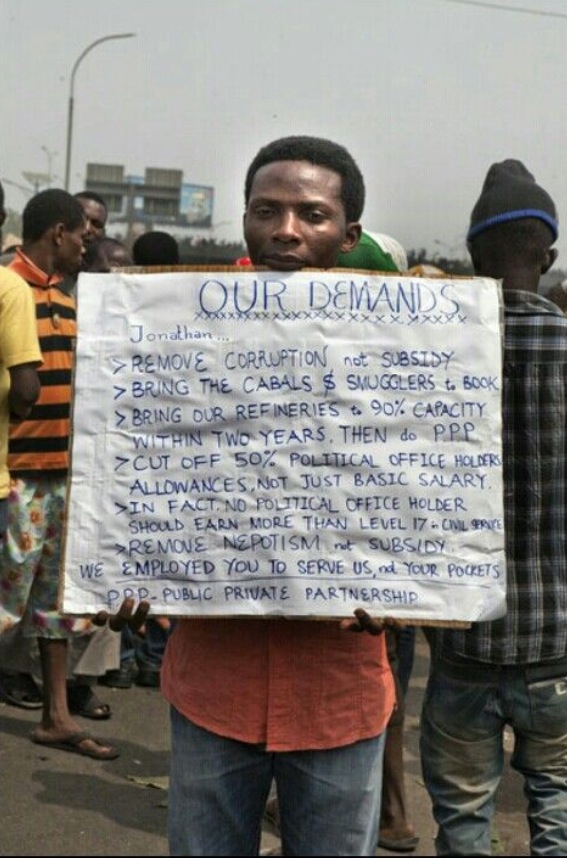 OUR DEMANDS
xxxxxxxxxxxxxxxxxxxxxxxxx
Jonathan...
> REMOVE CORRUPTION not SUBSIDY
> BRING THE CABALS $ SMUGGLERS to BOOK
> BRING OUR REFINERIES to 90% CAPACITY
WITHIN TWO YEARS. THEN do PPP
> CUT OFF 50% POLITICAL OFFICE HOLDERS
ALLOWANCES, NOT JUST BASIC SALARY.
> IN FACT, NO POLITICAL OFFICE HOLDER
SHOULD EARN MORE THAN LEVEL 17 in CIVIL SERVICE
> REMOVE NEPOTISM not SUBSIDY.
WE EMPLOYED YOU TO SERVE US, not YOUR POCKETS
PPP - PUBLIC PRIVATE PARTNERSHIP